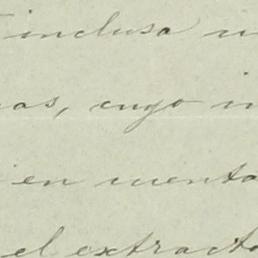 inclusa
as, cuyo
en cuenta
el extracto